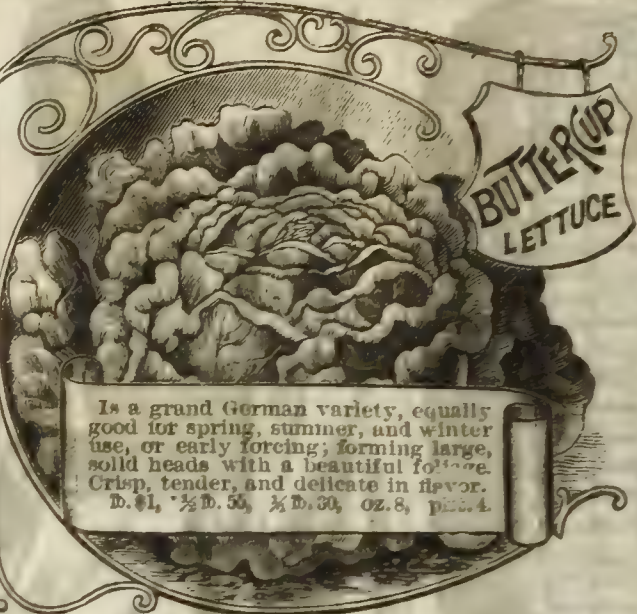 BUTTERCUP
LETTUCE
Is a grand German variety, equally
good for spring, summer, and winter
use, or early forcing; forming large,
solid heads with a beautiful foliage.
Crisp, tender, and delicate in flavor.
lb. $1, ½ lb. 55, ¼ lb. 30, oz. 8, pkt. 4.